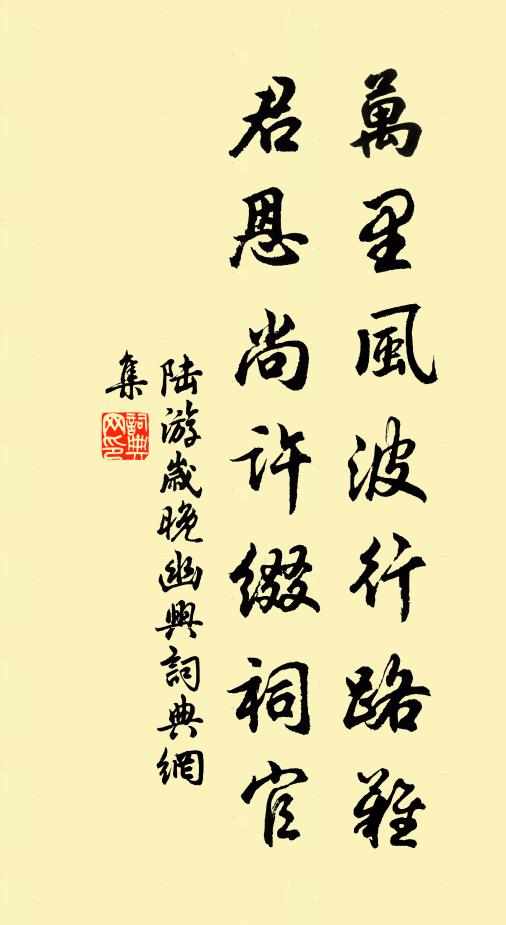 萬里風波行路難
君恩尚許綴祠官
陸游歲晚幽興詞典網
集
詞典網印